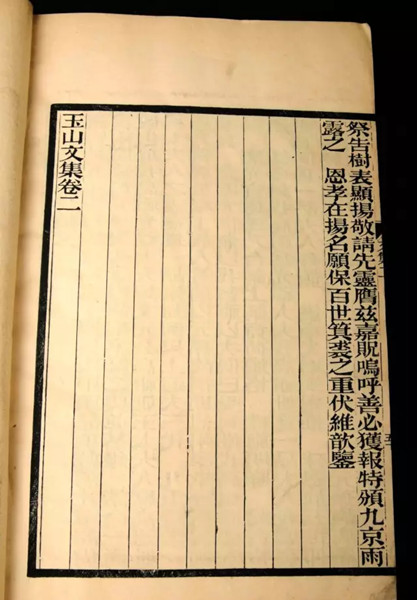 祭告樹表顯揚敬請先靈膺茲嘉貺嗚呼善必獲報特頒九京雨
露之　恩孝在揚名願保百世箕裘之重伏維歆鑒
玉山文集卷二